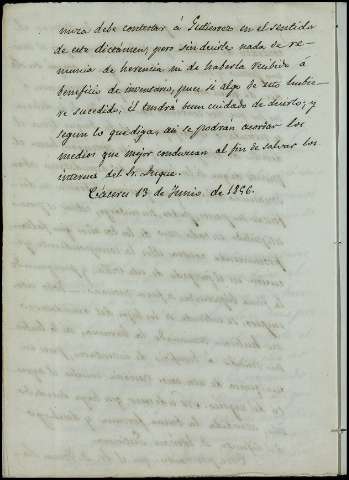 nuza debe contestar á Gutierrez en el sentido
de este dictámen, pero sin decirle nada de re-
nuncia de herencia ni de haberla recibido á
beneficio de inventario, pues si algo de esto hubie-
re sucedido, él tendrá buen cuidado de decirlo; y
segun lo que diga, asi se podrán acordar los
medios que mejor conduzcan al fin de salvar los
intereses del Sr. Duque.
Cáceres 13 de Junio de 1856.